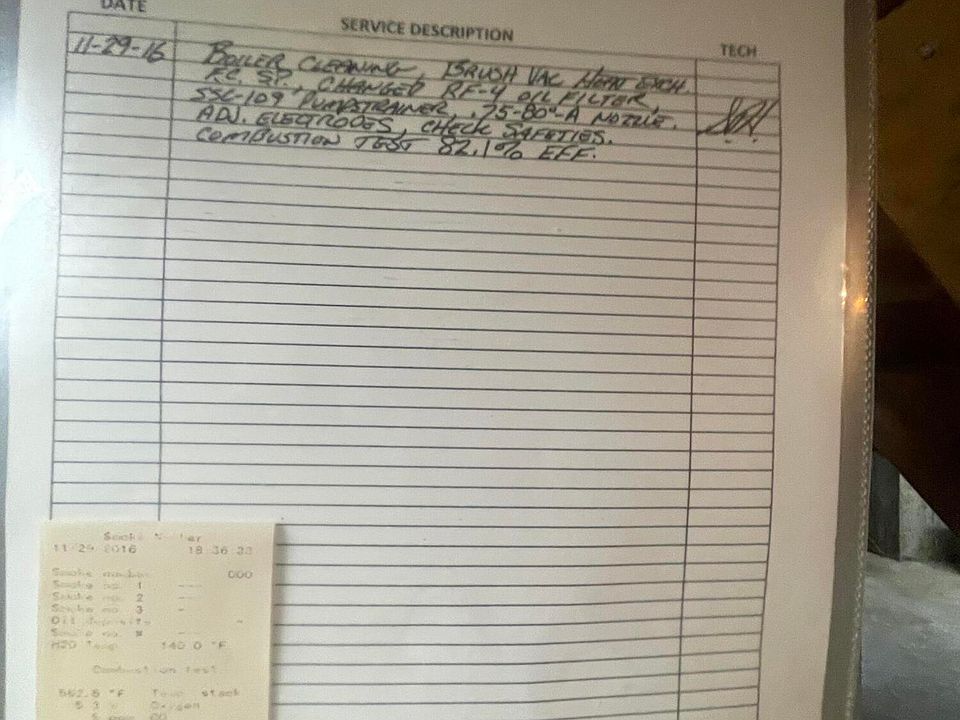 DATE SERVICE DESCRIPTION TECH
11-29-16 BOILER CLEANING, BRUSH VAC HEAT EXCH.
F.C. S.P., CHANGED RF-4 OIL FILTER,
SSC-109 PUMPSTRAINER, .75-80°-A NOZZLE.
ADJ. ELECTRODES, CHECK SAFETIES.
COMBUSTION TEST 82.1% EFF.
Smoke Number
11 29 2016 18 36
Smoke number 000
Smoke no. 1 ---
Smoke no. 2 ---
Smoke no. 3 -
Oil deposits -
Smoke no. -
H2O Temp 140.0 °F
Combustion test
562.5 °F Temp stack
5.3 % Oxygen
5 ppm CO